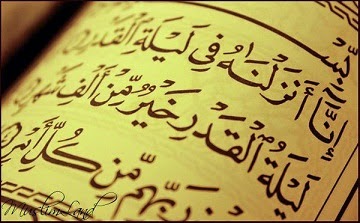 إِنَّآ أَنزَلْنَٰهُ فِي لَيْلَةِ ٱلْقَدْرِ
لَيْلَةُ ٱلْقَدْرِ خَيْرٌ مِّنْ أَلْفِ شَهْرٍ
رَبِّهِم مِّن كُلِّ أَمْرٍ
MuslimLand